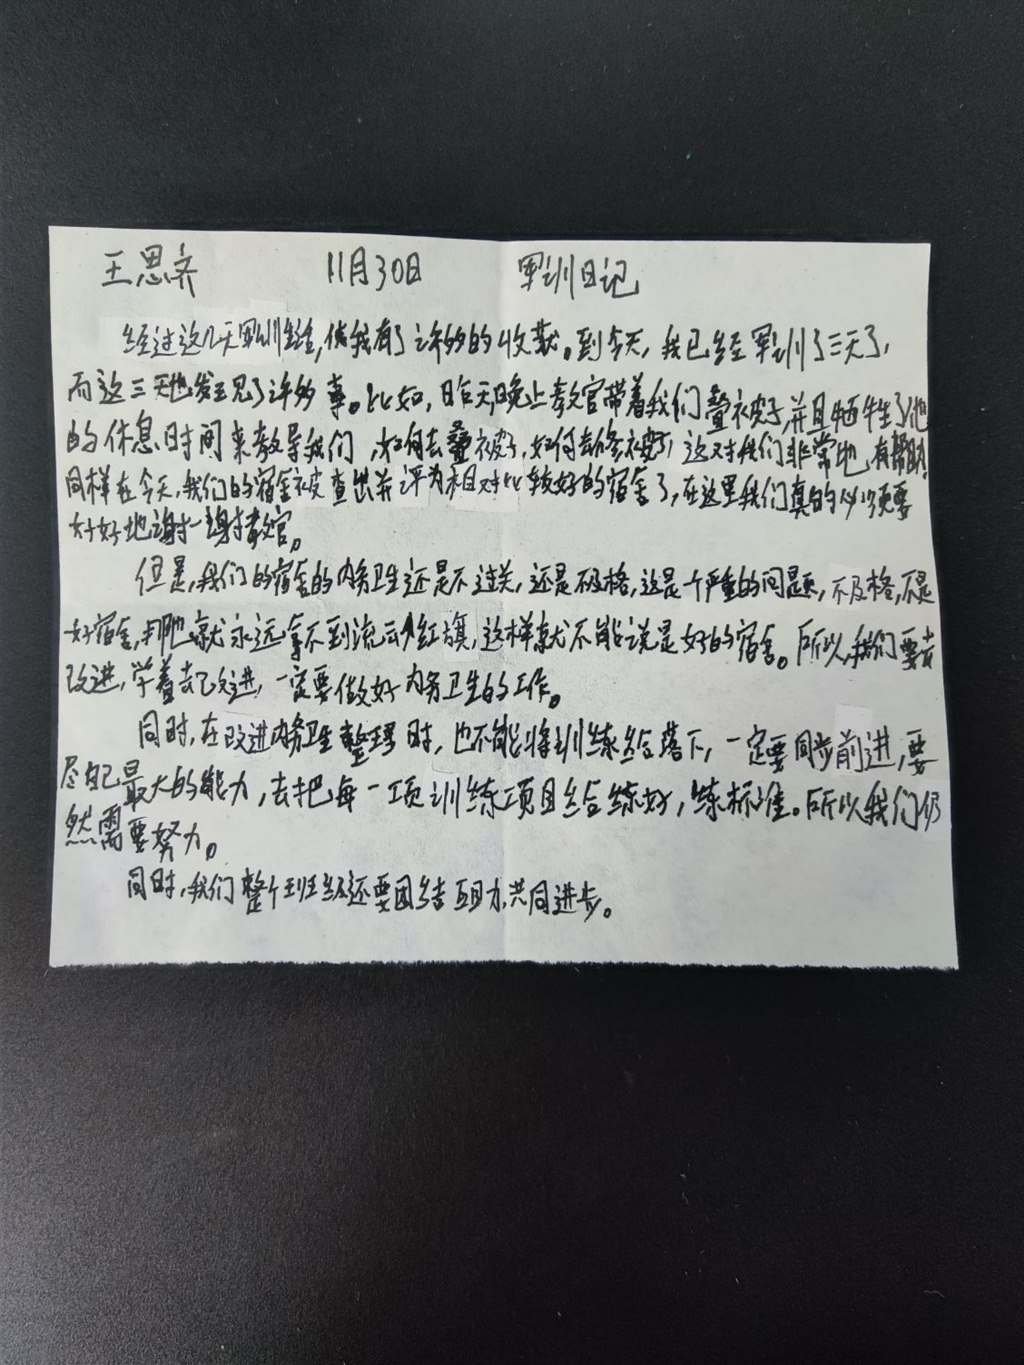 王思齐 11月30日 军训日记
经过这几天军训生活,使我有了许多的收获。到今天,我已经军训了三天了,
而这三天也发现了许多事。比如,昨天晚上教官带着我们叠被子,并且牺牲了他
的休息时间来教导我们,如何去叠被子,如何去修被子,这对我们非常地有帮助。
同样在今天,我们的宿舍被查出并评为相对比较好的宿舍了,在这里我们真的必须要
好好地谢一谢教官。
但是,我们的宿舍的内务卫生还是不过关,还是不及格,这是个严重的问题,不及格,不是
好宿舍,那他就永远拿不到流动红旗,这样就不能说是好的宿舍。所以,我们要去
改进,学着去改进,一定要做好内务卫生的工作。
同时,在改进内务卫生整理时,也不能将训练给落下,一定要同步前进,要
尽自己最大的能力,去把每一项训练项目给练好,练标准。所以我们仍
然需要努力。
同时,我们整个班级还要团结互助,共同进步。